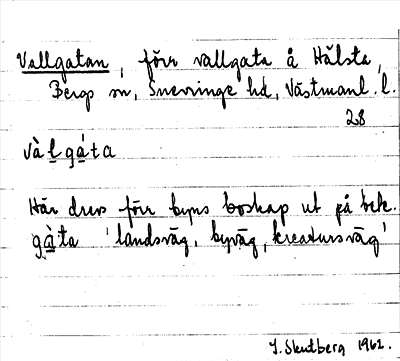 Vallgatan, förr vallgata å Hälsta,
Bergs sn, Snevringe hd, Västmanl. l.
28
và l g á t a
Här drevs förr byns boskap ut på bete.
gà ta 'landsväg, byväg, kreatursväg'
J. Skutberg 1962.